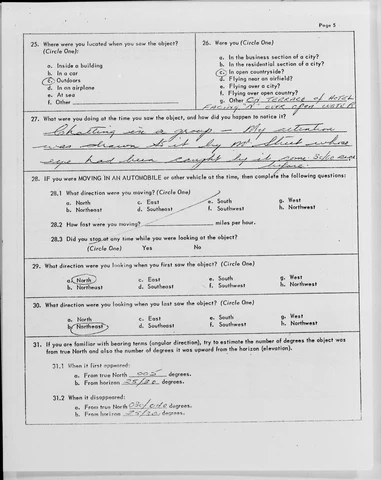 Page 5
25. Where were you located when you saw the object?
(Circle One):
a. Inside a building
b. In a car
c. Outdoors
d. In an airplane
e. At sea
f. Other
26. Were you (Circle One)
a. In the business section of a city?
b. In the residential section of a city?
c. In open countryside?
d. Flying near an airfield?
e. Flying over a city?
f. Flying over open country?
g. Other ON TERRACE of HOTEL
FACING N over open WATER
27. What were you doing at the time you saw the object, and how did you happen to notice it?
Chatting in a group - My attention
was drawn to it by Mr Street whose
eye had been caught by it some 30/60 secs
before.
28. IF you were MOVING IN AN AUTOMOBILE or other vehicle at the time, then complete the following questions:
28.1 What direction were you moving? (Circle One)
a. North c. East e. South g. West
b. Northeast d. Southeast f. Southwest h. Northwest
28.2 How fast were you moving? miles per hour.
28.3 Did you stop at any time while you were looking at the object?
(Circle One) Yes No
29. What direction were you looking when you first saw the object? (Circle One)
a. North c. East e. South g. West
b. Northeast d. Southeast f. Southwest h. Northwest
30. What direction were you looking when you last saw the object? (Circle One)
a. North c. East e. South g. West
b. Northeast d. Southeast f. Southwest h. Northwest
31. If you are familiar with bearing terms (angular direction), try to estimate the number of degrees the object was
from true North and also the number of degrees it was upward from the horizon (elevation).
31.1 When it first appeared:
a. From true North 005 degrees.
b. From horizon 25/30 degrees.
31.2 When it disappeared:
a. From true North 030/040 degrees.
b. From horizon 25/30 degrees.